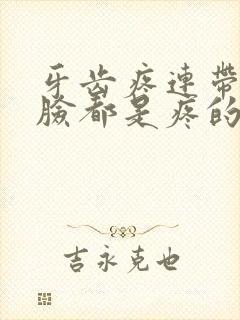 牙齿疼連带
臉都是疼的
吉永克也